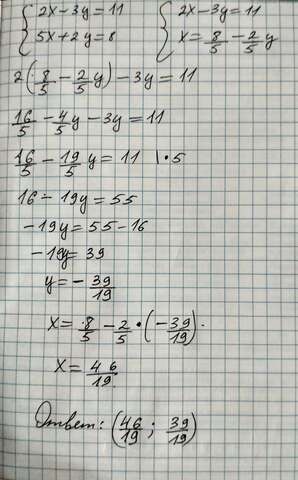 {2x-3y=11 {2x-3y=11
{5x+2y=8 {x=8/5-2/5y
2(8/5-2/5y)-3y=11
16/5-4/5y-3y=11
16/5-19/5y=11 |•5
16-19y=55
-19y=55-16
-19y=39
y=-39/19
x=8/5-2/5•(-39/19).
x=46/19.
Ответ: (46/19; 39/19)